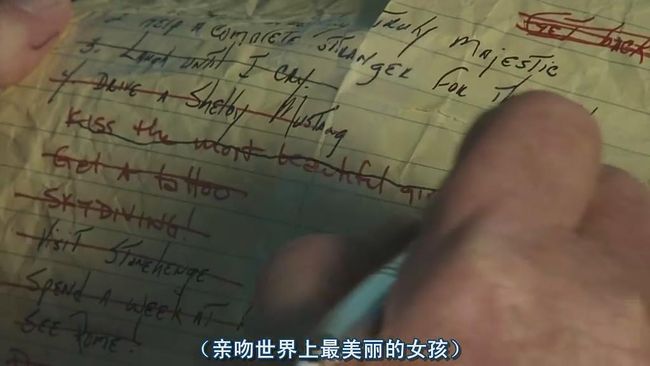 TRULY MAJESTIC
HELP A COMPLETE STRANGER FOR
3. LAUGH UNTIL I CRY.
4) DRIVE A Shelby MUSTANG
Kiss the most beautiful
Get A tattoo
SKYDIVING!
Visit STONEHENGE
SPEND A WEEK AT
SEE ROME.
GET BACK
（亲吻世界上最美丽的女孩）